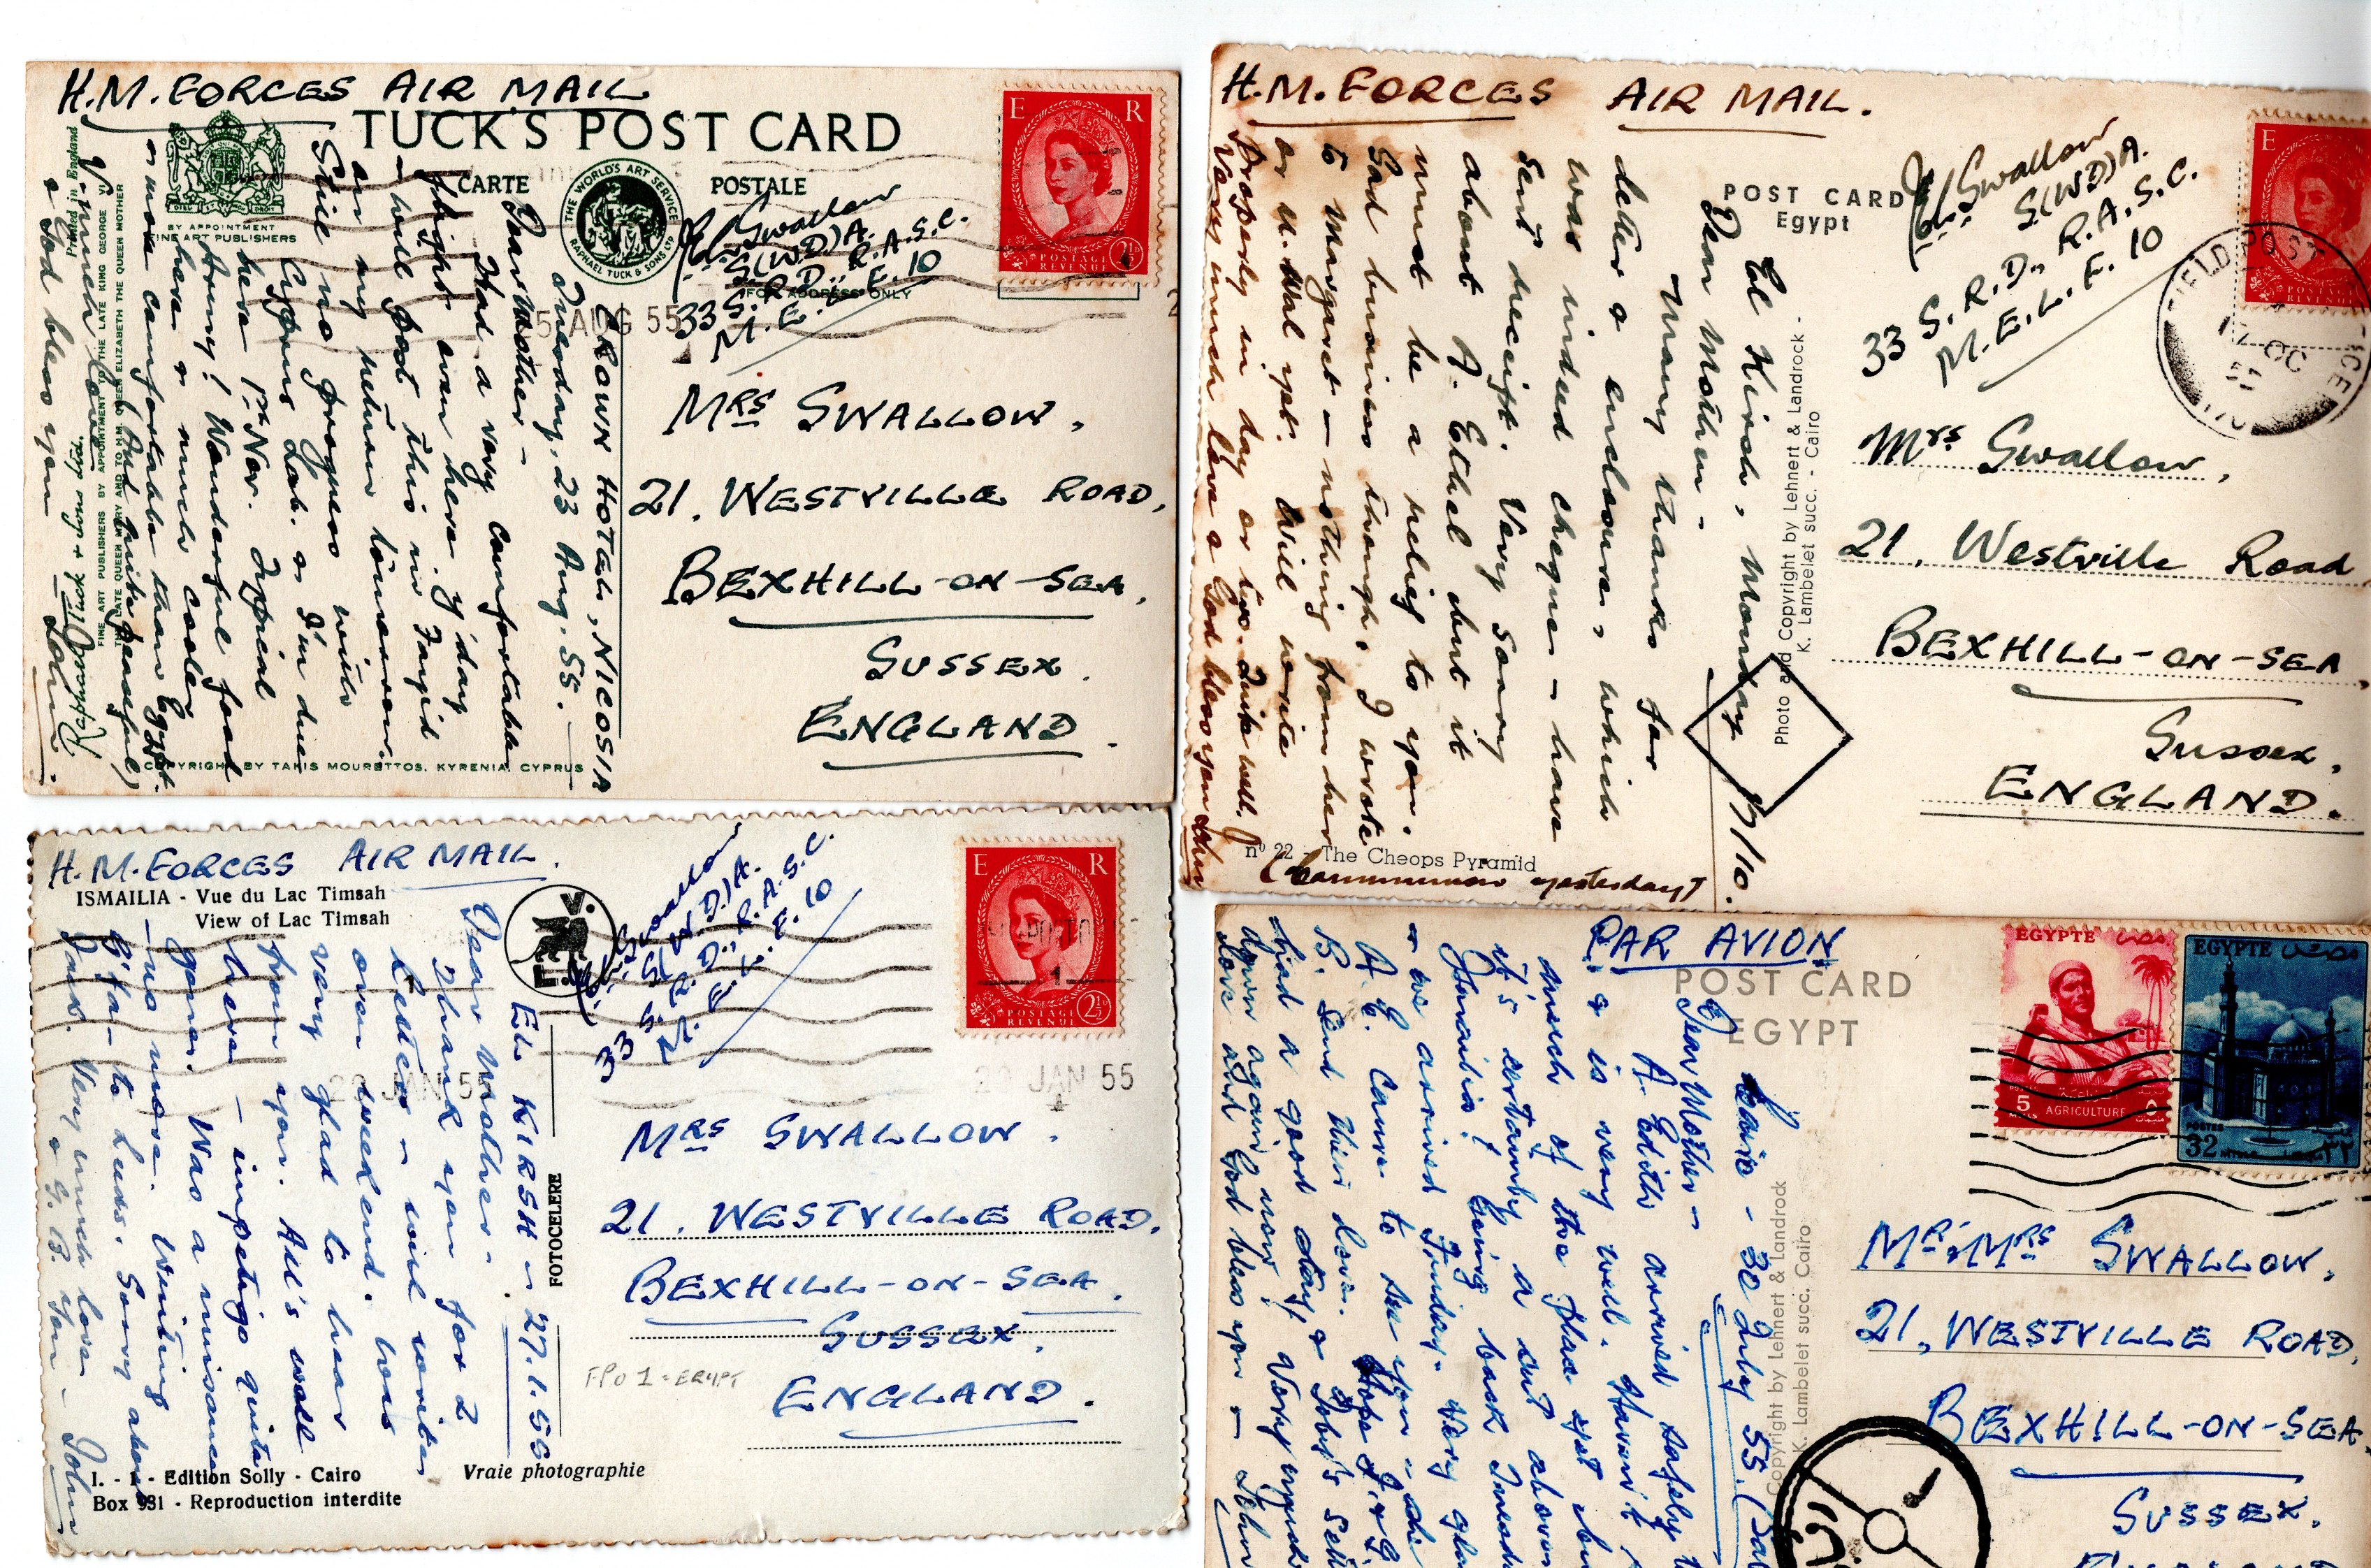 H.M. FORCES AIR MAIL
TUCK'S POST CARD
CARTE POSTALE
THE WORLD'S ART SERVICE
RAPHAEL TUCK & SONS LTD
BY APPOINTMENT
FINE ART PUBLISHERS
FOR ADDRESS ONLY
Printed in England
FINE ART PUBLISHERS BY APPOINTMENT TO THE LATE KING GEORGE VI
THE LATE QUEEN MARY AND TO H.M. QUEEN ELIZABETH THE QUEEN MOTHER
Raphael Tuck & Sons Ltd.
COPYRIGHT BY TAKIS MOURETTOS, KYRENIA, CYPRUS
E R
POSTAGE REVENUE 2½
AUG 55
Swallow
S(WD)A.
33 S.R.D., R.A.S.C.
M.E.L.F. 10
MRS SWALLOW,
21, WESTVILLE ROAD,
BEXHILL-ON-SEA,
SUSSEX.
ENGLAND.
CROWN HOTEL, NICOSIA
Tuesday, 23 Aug. 55.
Dear Mother -
Had a very comfortable
flight over here y'day
& will post this in Fayid
on my return tomorrow.
Still no progress with
Cyprus Lab. & I'm due
here 1st Nov. Typical
Army! Wonderful food
here & much cooler
& more comfortable than Egypt.
(And quite peaceful)
V. much love
& God bless you - John.
H.M. FORCES AIR MAIL.
POST CARD
Egypt
Swallow
S(WD)A.
33 S.R.D., R.A.S.C.
M.E.L.F. 10
E
POSTAGE REVENUE
FIELD POST OFFICE
17 OC
Mrs Swallow,
21, Westville Road
BEXHILL-ON-SEA,
Sussex,
ENGLAND.
Photo and Copyright by Lehnert & Landrock -
K. Lambelet succ. - Cairo
nº 22 - The Cheops Pyramid
El Kirsh, Monday 17/10.
Dear Mother -
Many thanks for
letter & enclosure, which
was indeed cheque - have
sent receipt. Very sorry
about A. Ethel but it
must be a relief to you.
Sad business though. I wrote
to Margaret - nothing from her
or U. Wal yet. Will write
properly in day or two. Quite well.
Very much love & God bless you John
(Communion yesterday)
H.M. FORCES AIR MAIL.
ISMAILIA - Vue du Lac Timsah
View of Lac Timsah
Swallow
S(W.D.)A.
33 S.R.D., R.A.S.C.
M.E.L.F. 10
E R
POSTAGE REVENUE 2½
JAN 55
JAN 55
MRS SWALLOW.
21, WESTVILLE ROAD,
BEXHILL-ON-SEA,
SUSSEX,
ENGLAND.
FPO 1 = EGYPT
FOTOCELERE
I. - - Edition Solly - Cairo
Box 931 - Reproduction interdite
Vraie photographie
EL KIRSH - 27.1.55
Dear Mother -
Thank you for 2
letters - will write
over weekend. Was
very glad to hear
from you. All's well
here - impetigo quite
gone. Was a nuisance
- no more. Writing
to Luds. Sorry about
Very much love
& G. B. you - John
PAR AVION
POST CARD
EGYPT
EGYPTE
5 MILLS AGRICULTURE
EGYPTE
POSTES
32
MR & MRS SWALLOW,
21, WESTVILLE ROAD,
BEXHILL-ON-SEA,
SUSSEX.
Copyright by Lehnert & Landrock
K. Lambelet succ. Cairo
Cairo - 30 July 55.
Dear Mother -
A. Edith arrived safely
& is very well. Haven't
much of the place yet
it's certainly a cut above
Ismailia! Going back Tuesday
& we arrived Friday. Very glad
A.E. came to see you - she
B. send their love. Hope J. & G.
had a good day, & Toby's
down again now. Very much
love and God bless you - John